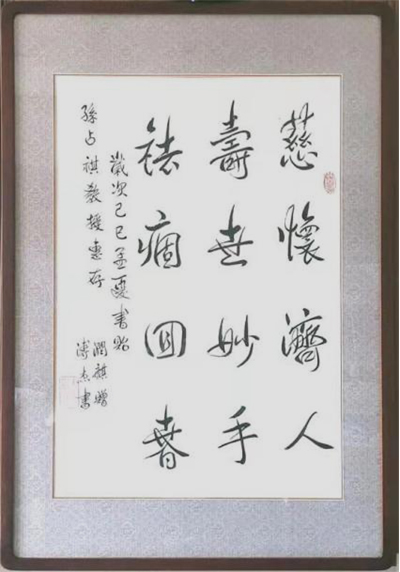 慈懷濟人
壽世妙手
祛痼回春
歲次己巳孟夏書貽
孫占祺教授惠存
潤麒贈
溥杰書